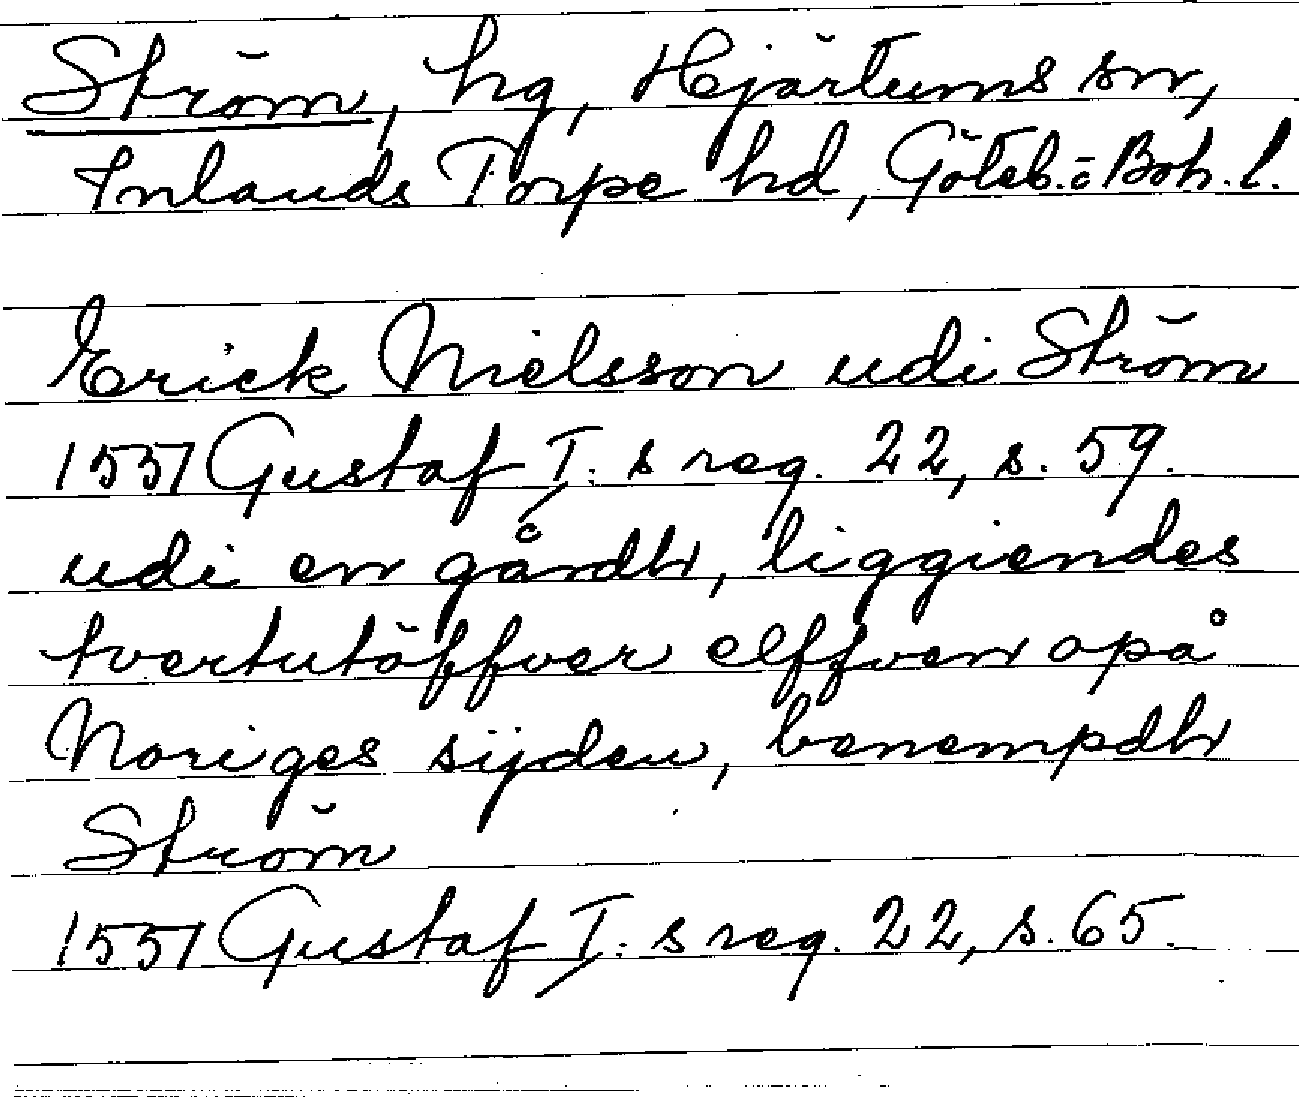 Ström, hg, Hjärtums sn,
Inlands Torpe hd, Göteb. o Boh. l.
Erick Nielsson udi Ström
1551 Gustaf I: s reg. 22, s. 59.
udi en gårdh, liggiendes
tvertutöffver elffven opå
Noriges sijden, benempdh
Ström
1551 Gustaf I: s reg. 22, s. 65.